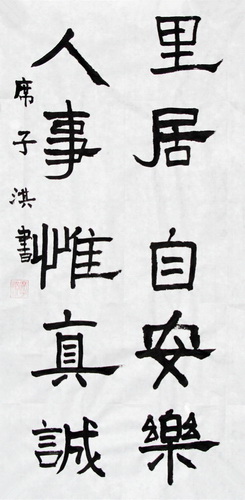 里居自安樂
人事惟真誠
席子淇書